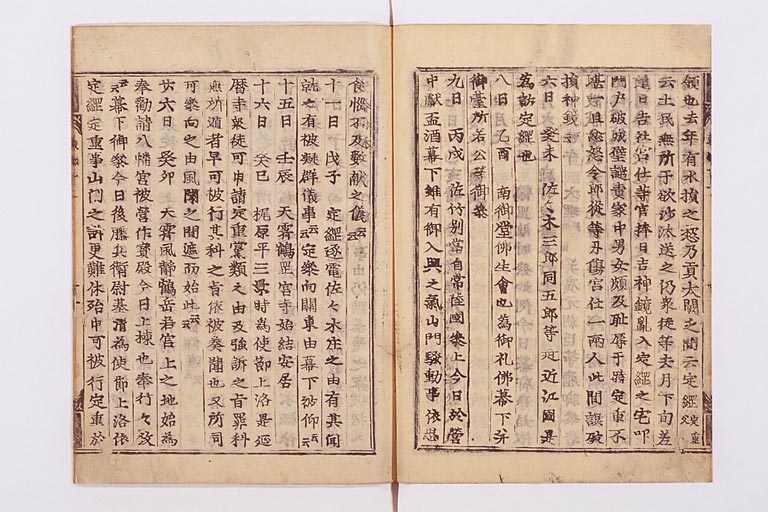 領也去年有水損之愁乃貢太闕之間云定綱云定重
云土民無所于欲沙汰送之仍衆徒等去月下旬差
遣日吉社宮仕等官捧日吉神鏡亂入定綱之宅叩
門戸破城壁譴責家中男女頗及耻辱于時定重不
堪忿怒令郎從等刃傷宮仕一兩人此間誤破
損神鏡云
六日 癸未 佐々木三郎同五郎等 近江國是
為訪定綱也
八日 乙酉 南御堂佛生會也為御礼佛幕下并
御臺所若公等御參
九日 丙戌 佐竹別當自常陸國參上今日於營
中獻盃酒幕下雖有御入興之氣山門騷動事依思
食惱不及獻之儀云云
十一日 戊子 定綱逐電佐々木庄之由有其聞
就之有被凝群儀事云云定參向關東由幕下被仰云云
十五日 壬辰 天霽鶴罡宮寺始結安居
十六日 癸巳 梶原平三景時為使節上洛是延
暦寺衆徒可申請定重黨類之由及強訴之旨罪科
無所遁者早可被行其科之旨依被奏聞也又所司
可參向之由風聞之間遮而始此云云
廿六日 癸卯 天霽風靜鶴岳若宮上之地始為
奉勸請八幡宮被營作寶殿今日上棟也奉行々政
云云幕下御參今日後藤兵衛尉基清為使節上洛依
定綱定重事山門之訴更難休殆申可被行定重於